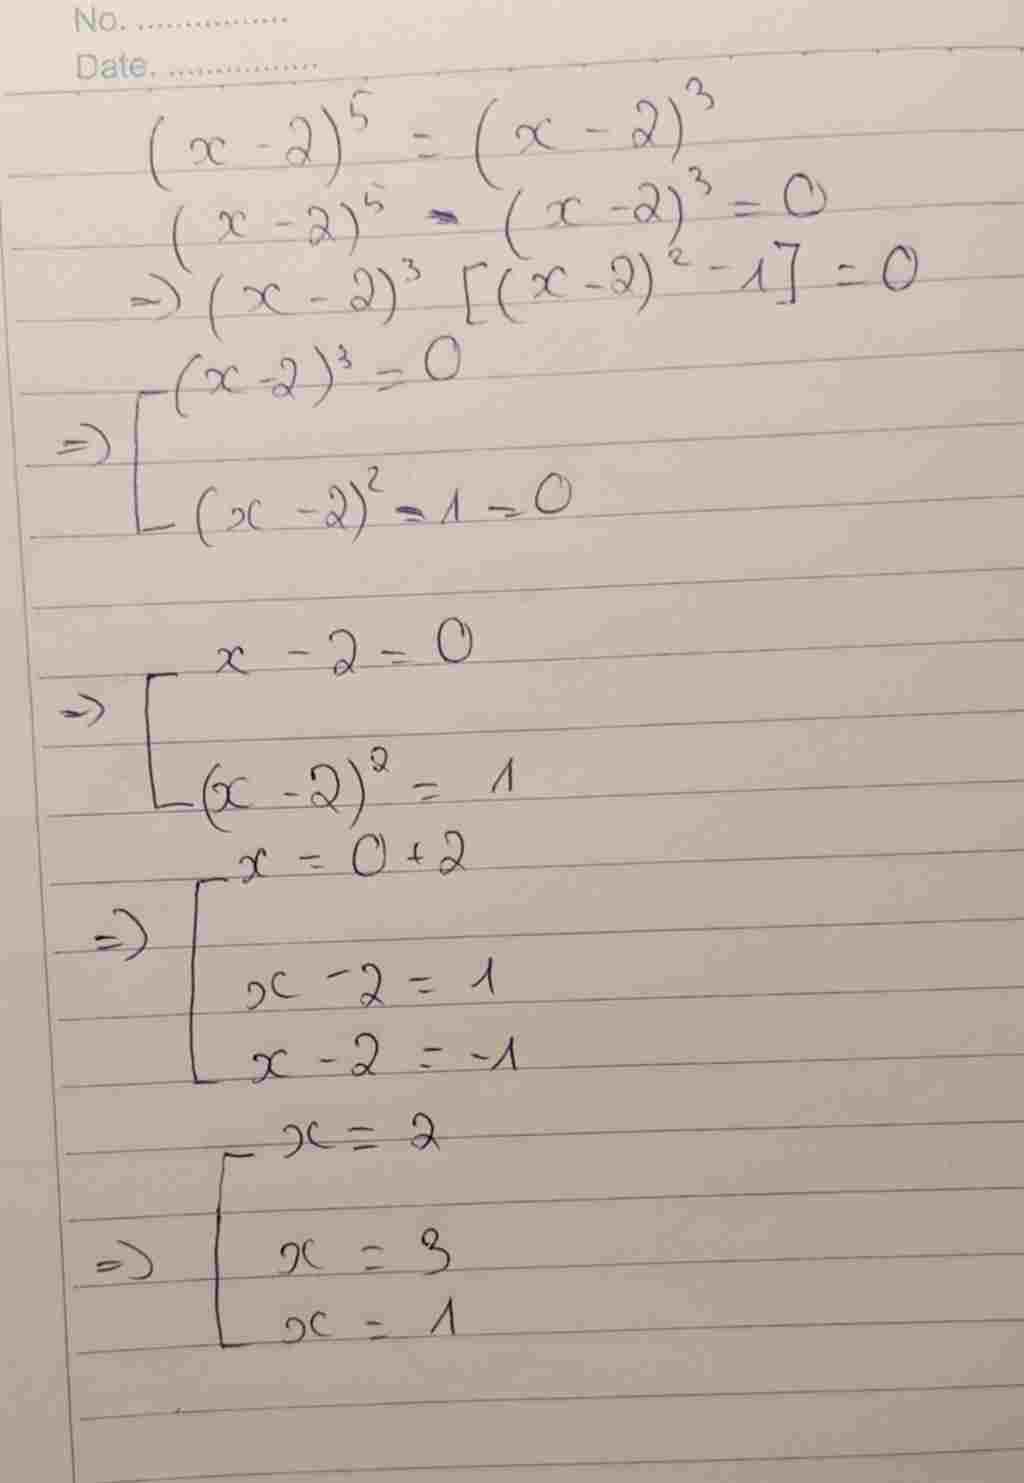 No. ................
Date. ................
(x - 2)⁵ = (x - 2)³
(x - 2)⁵ - (x - 2)³ = 0
=> (x - 2)³ [(x - 2)² - 1] = 0
(x - 2)³ = 0
=>
(x - 2)² - 1 = 0
x - 2 = 0
=>
(x - 2)² = 1
x = 0 + 2
=>
x - 2 = 1
x - 2 = -1
x = 2
=>
x = 3
x = 1